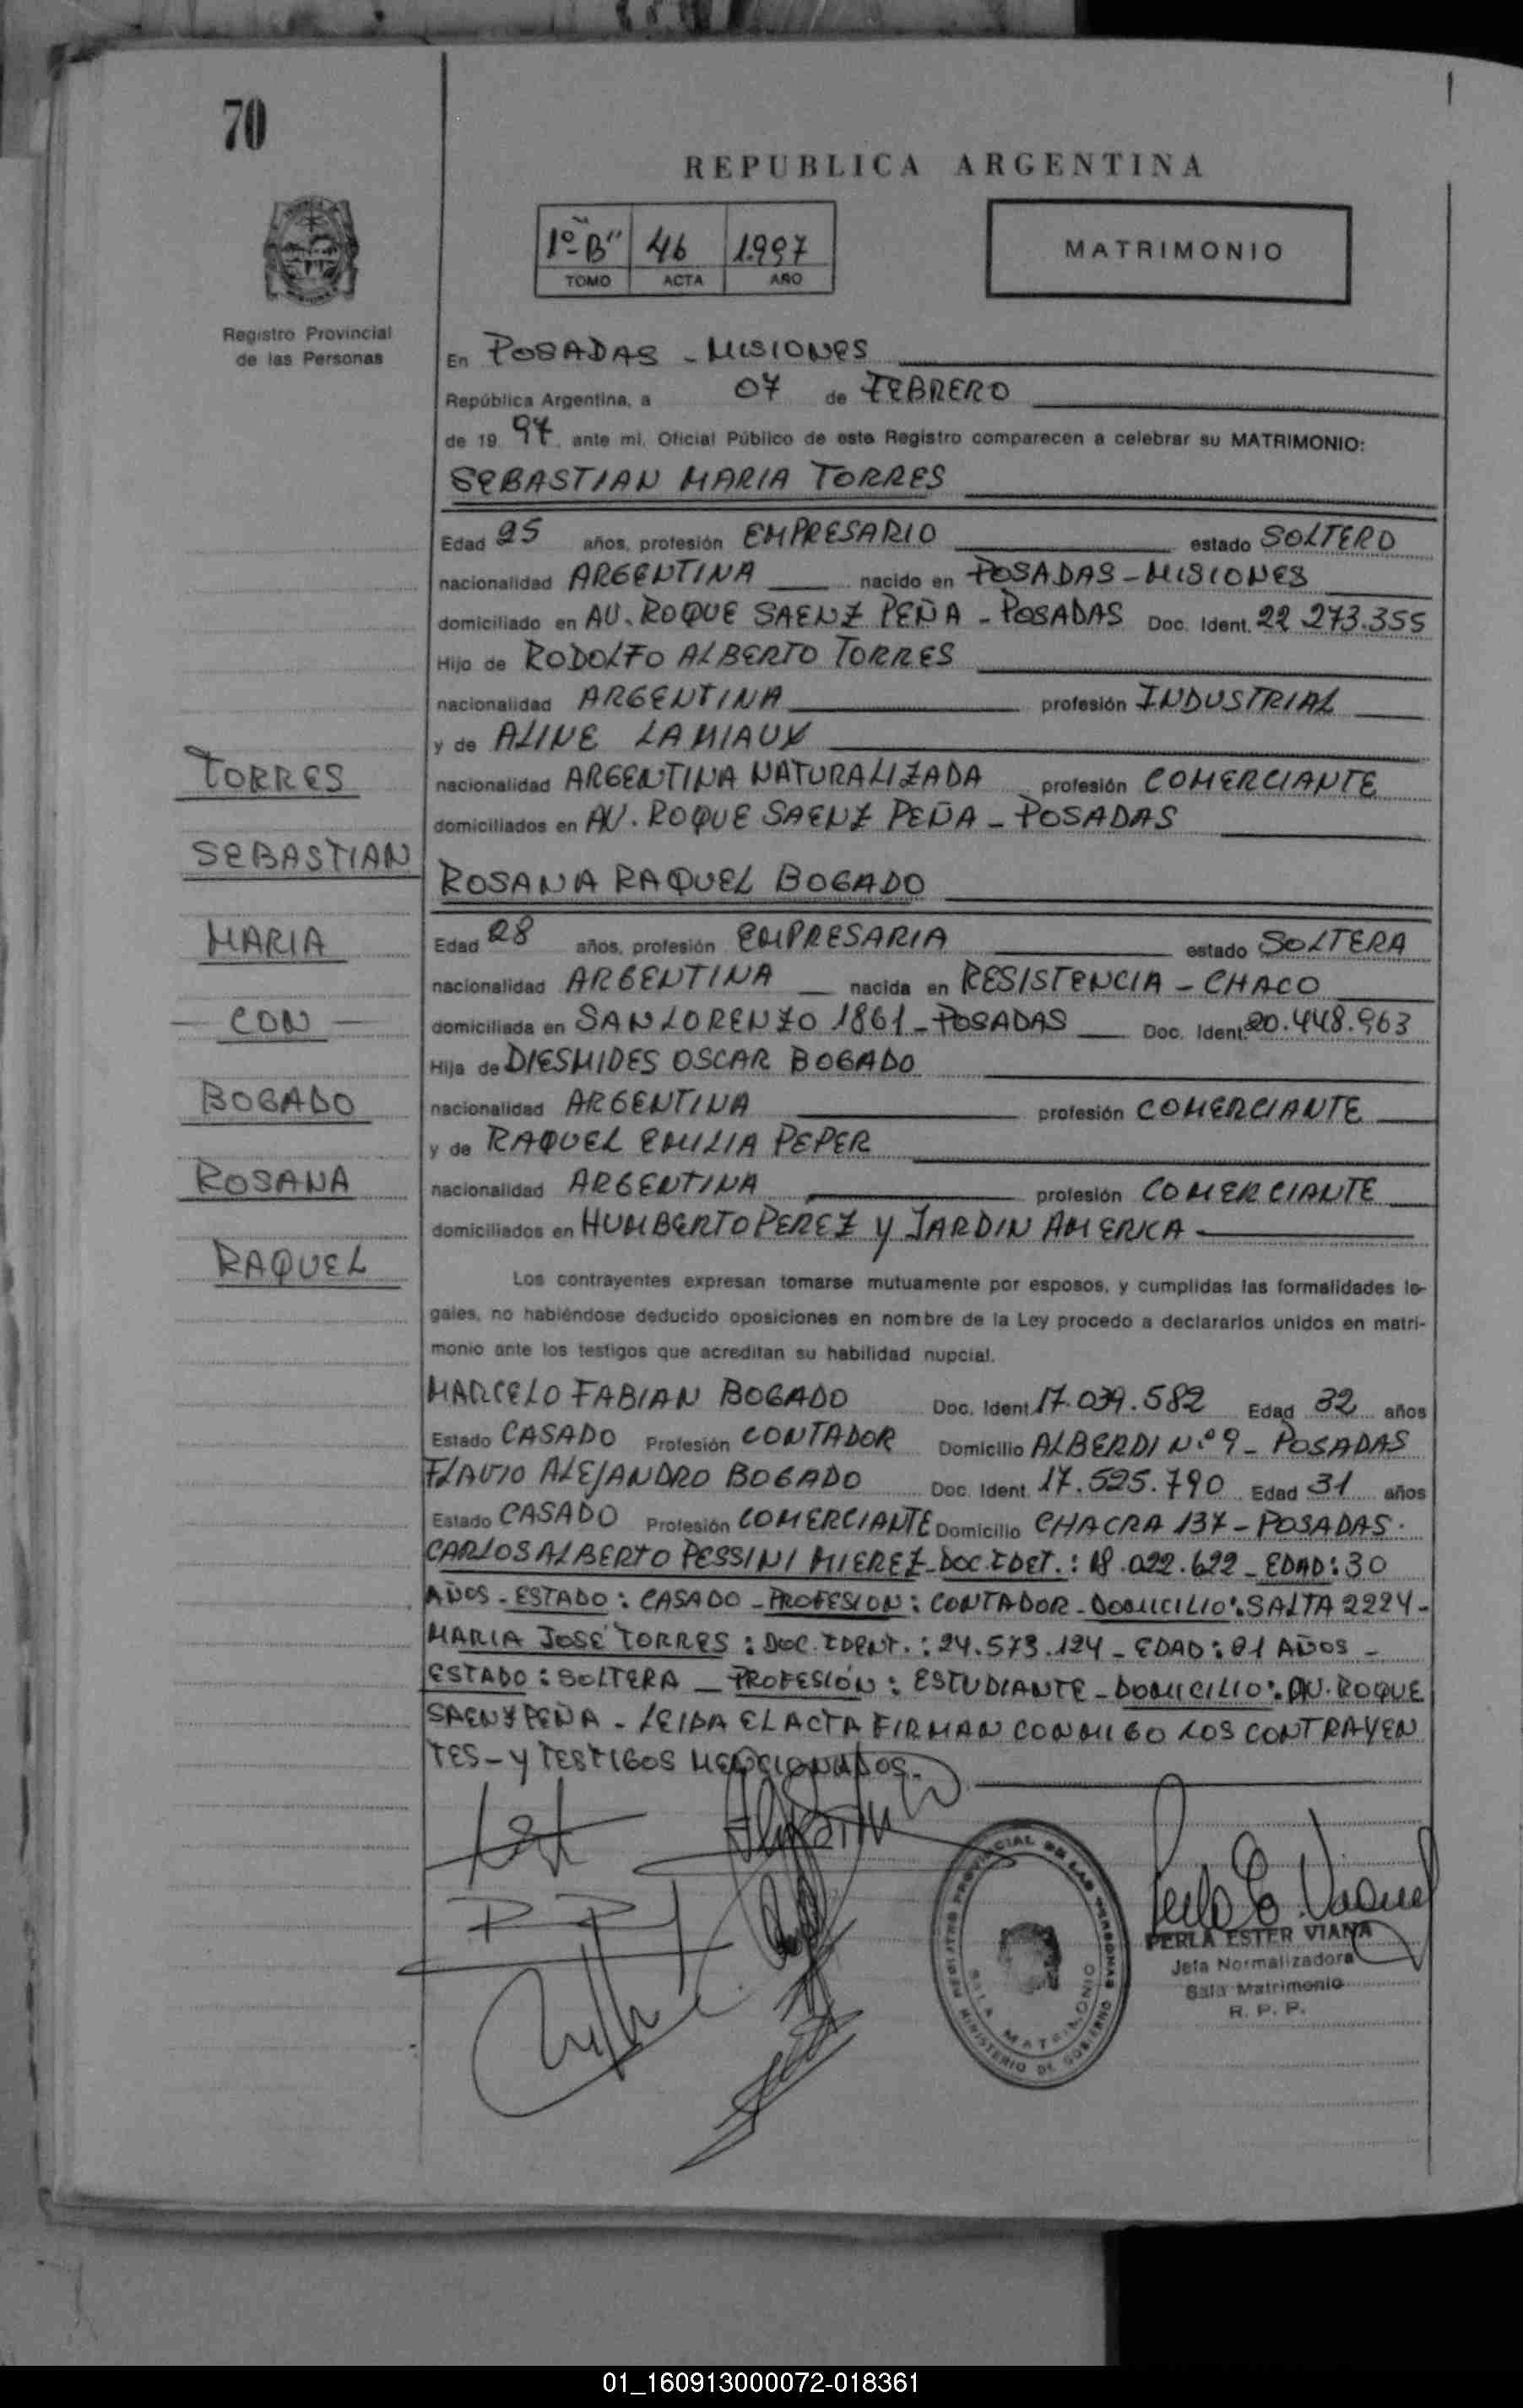 70
REPUBLICA ARGENTINA
1º "B" 46 1.997
TOMO ACTA AÑO
MATRIMONIO
Registro Provincial
de las Personas
En POSADAS - MISIONES
República Argentina, a 07 de FEBRERO
de 19 97 ante mí, Oficial Público de este Registro comparecen a celebrar su MATRIMONIO:
SEBASTIAN MARIA TORRES
Edad 25 años, profesión EMPRESARIO estado SOLTERO
nacionalidad ARGENTINA nacido en POSADAS - MISIONES
domiciliado en AV. ROQUE SAENZ PEÑA - POSADAS Doc. Ident. 22.273.355
Hijo de RODOLFO ALBERTO TORRES
nacionalidad ARGENTINA profesión INDUSTRIAL
y de ALINE LAMIAUX
nacionalidad ARGENTINA NATURALIZADA profesión COMERCIANTE
domiciliados en AV. ROQUE SAENZ PEÑA - POSADAS
TORRES
SEBASTIAN
MARIA
CON
BOGADO
ROSANA
RAQUEL
ROSANA RAQUEL BOGADO
Edad 28 años, profesión EMPRESARIA estado SOLTERA
nacionalidad ARGENTINA nacida en RESISTENCIA - CHACO
domiciliada en SAN LORENZO 1861 - POSADAS Doc. Ident. 20.448.963
Hija de DIESMIDES OSCAR BOGADO
nacionalidad ARGENTINA profesión COMERCIANTE
y de RAQUEL EMILIA PEPER
nacionalidad ARGENTINA profesión COMERCIANTE
domiciliados en HUMBERTO PEREZ Y JARDIN AMERICA
Los contrayentes expresan tomarse mutuamente por esposos, y cumplidas las formalidades le-
gales, no habiéndose deducido oposiciones en nombre de la Ley procedo a declararlos unidos en matri-
monio ante los testigos que acreditan su habilidad nupcial.
MARCELO FABIAN BOGADO Doc. Ident 17.039.582 Edad 32 años
Estado CASADO Profesión CONTADOR Domicilio ALBERDI N.º 9 - POSADAS
FLAVIO ALEJANDRO BOGADO Doc. Ident. 17.525.790 Edad 31 años
Estado CASADO Profesión COMERCIANTE Domicilio CHACRA 137 - POSADAS.
CARLOS ALBERTO PESSINI MIEREZ - DOC. IDET.: 18.022.622 - EDAD: 30
AÑOS - ESTADO: CASADO - PROFESION: CONTADOR - DOMICILIO: SALTA 2224 -
MARIA JOSÉ TORRES: DOC. IDENT.: 24.573.124 - EDAD: 21 AÑOS -
ESTADO: SOLTERA - PROFESIÓN: ESTUDIANTE - DOMICILIO: AV. ROQUE
SAENZ PEÑA - LEIDA EL ACTA FIRMAN CONMIGO LOS CONTRAYEN
TES - Y TESTIGOS MENCIONADOS.
REGISTRO PROVINCIAL DE LAS PERSONAS
SALA MATRIMONIO
MINISTERIO DE GOBIERNO
PERLA ESTER VIANA
Jefa Normalizadora
Sala Matrimonio
R. P. P.
01_160913000072-018361